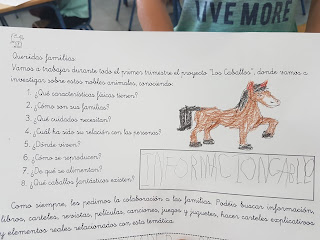 VIVE MORE
Queridas familias
Vamos a trabajar durante todo el primer trimestre el proyecto "Los Caballos", donde vamos a
investigar sobre estos nobles animales, conociendo:
1. ¿Qué características físicas tienen?
2. ¿Cómo son sus familias?
3. ¿Qué cuidados necesitan?
4. ¿Cuál ha sido su relación con las personas?
5. ¿Dónde viven?
6. ¿Cómo se reproducen?
7. ¿De qué se alimentan?
8. ¿Qué caballos fantásticos existen?
Como siempre, les pedimos la colaboración a las familias. Podéis buscar información,
libros, carteles, revistas, películas, canciones, juegos y juguetes, hacer carteles explicativos
y elementos reales relacionados con esta temática.